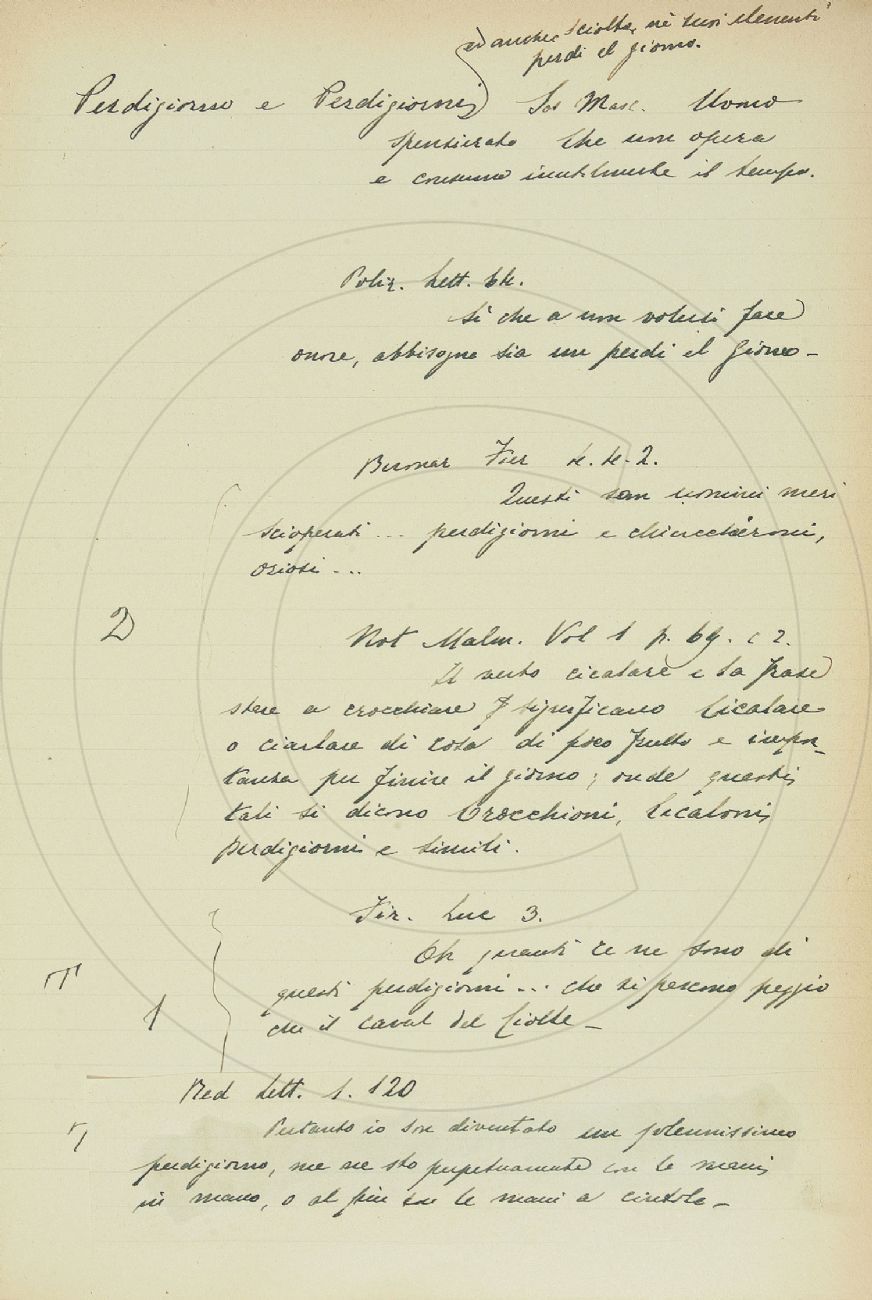 ed anche, sciolta, nè suoi elementi
perdi il giorno.
Perdigiorno e Perdigiorni Sos Masc. Uomo
spensierato che non opera
e consuma inutilmente il tempo.
Poliz. Lett. 64.
Sì che a non volersi fare
onore, abbisogna sia un perdi il giorno -
Buonar Fier 4. 4. 2.
Questi son uomini meri
scioperati ... perdigiorni e chiaccheroni,
oziosi ...
2
Not Malm. Vol 1 p. 69. c 2.
Il verbo cicalare e la frase
stare a crocchiare significano Cicalare
o ciarlare di cosa di poco frutto e impor-
tanza per finire il giorno; onde questi
tali si dicono Crocchioni, Cicaloni
Perdigiorni e simili.
Fir. Luc 3.
Oh quanti ce ne sono di
T
questi perdigiorni ... che si pascono peggio
1
che il caval del Ciolle -
Red Lett. 1. 120
Pertanto io son diventato un solennissimo
perdigiorno, me ne sto perpetuamente con le mani
in mano, o al più con le mani a cintola -